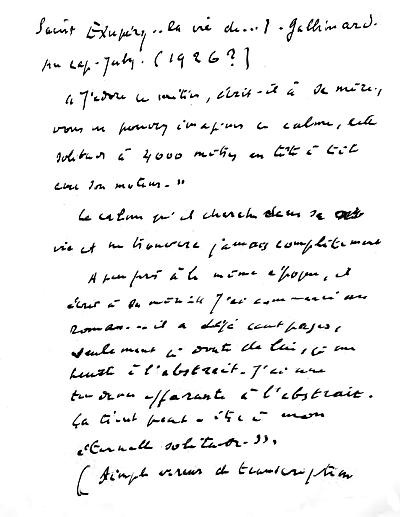 Saint Exupéry.. la vie de...). Gallimard.
au cap-Juby. (1926?)
"J'adore ce métier, écrit-il à sa mère,
vous ne pouvez imaginer ce calme, cette
solitude à 4000 mètres en tête à tête
avec son moteur."
Le calme qu'il cherche dans sa
vie et ne trouvera jamais complètement
A peu près à la même époque, il
écrit à sa mère J'ai commencé un
roman... il a déjà cent pages,
seulement je doute de lui, je me
heurte à l'abstrait. J'ai une
tendance effarante à l'abstrait.
Ça tient peut-être à mon
éternelle solitude.".
(Simple erreur de transcription